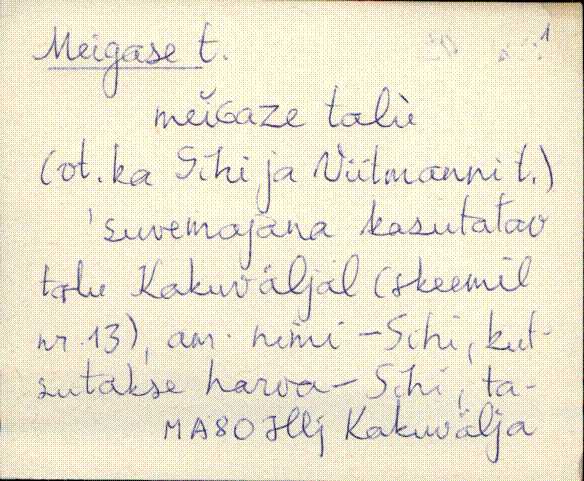 1
Meigase t.
meiGaze talu
(vt. ka Sihi ja Viitmanni t.)
'suvemajana kasutatav
talu Kakuväljal (skeemil
nr. 13), am. nimi - Sihi, kut-
sutakse harva - Sihi, ta-
MA80 Jllj Kakuvälja